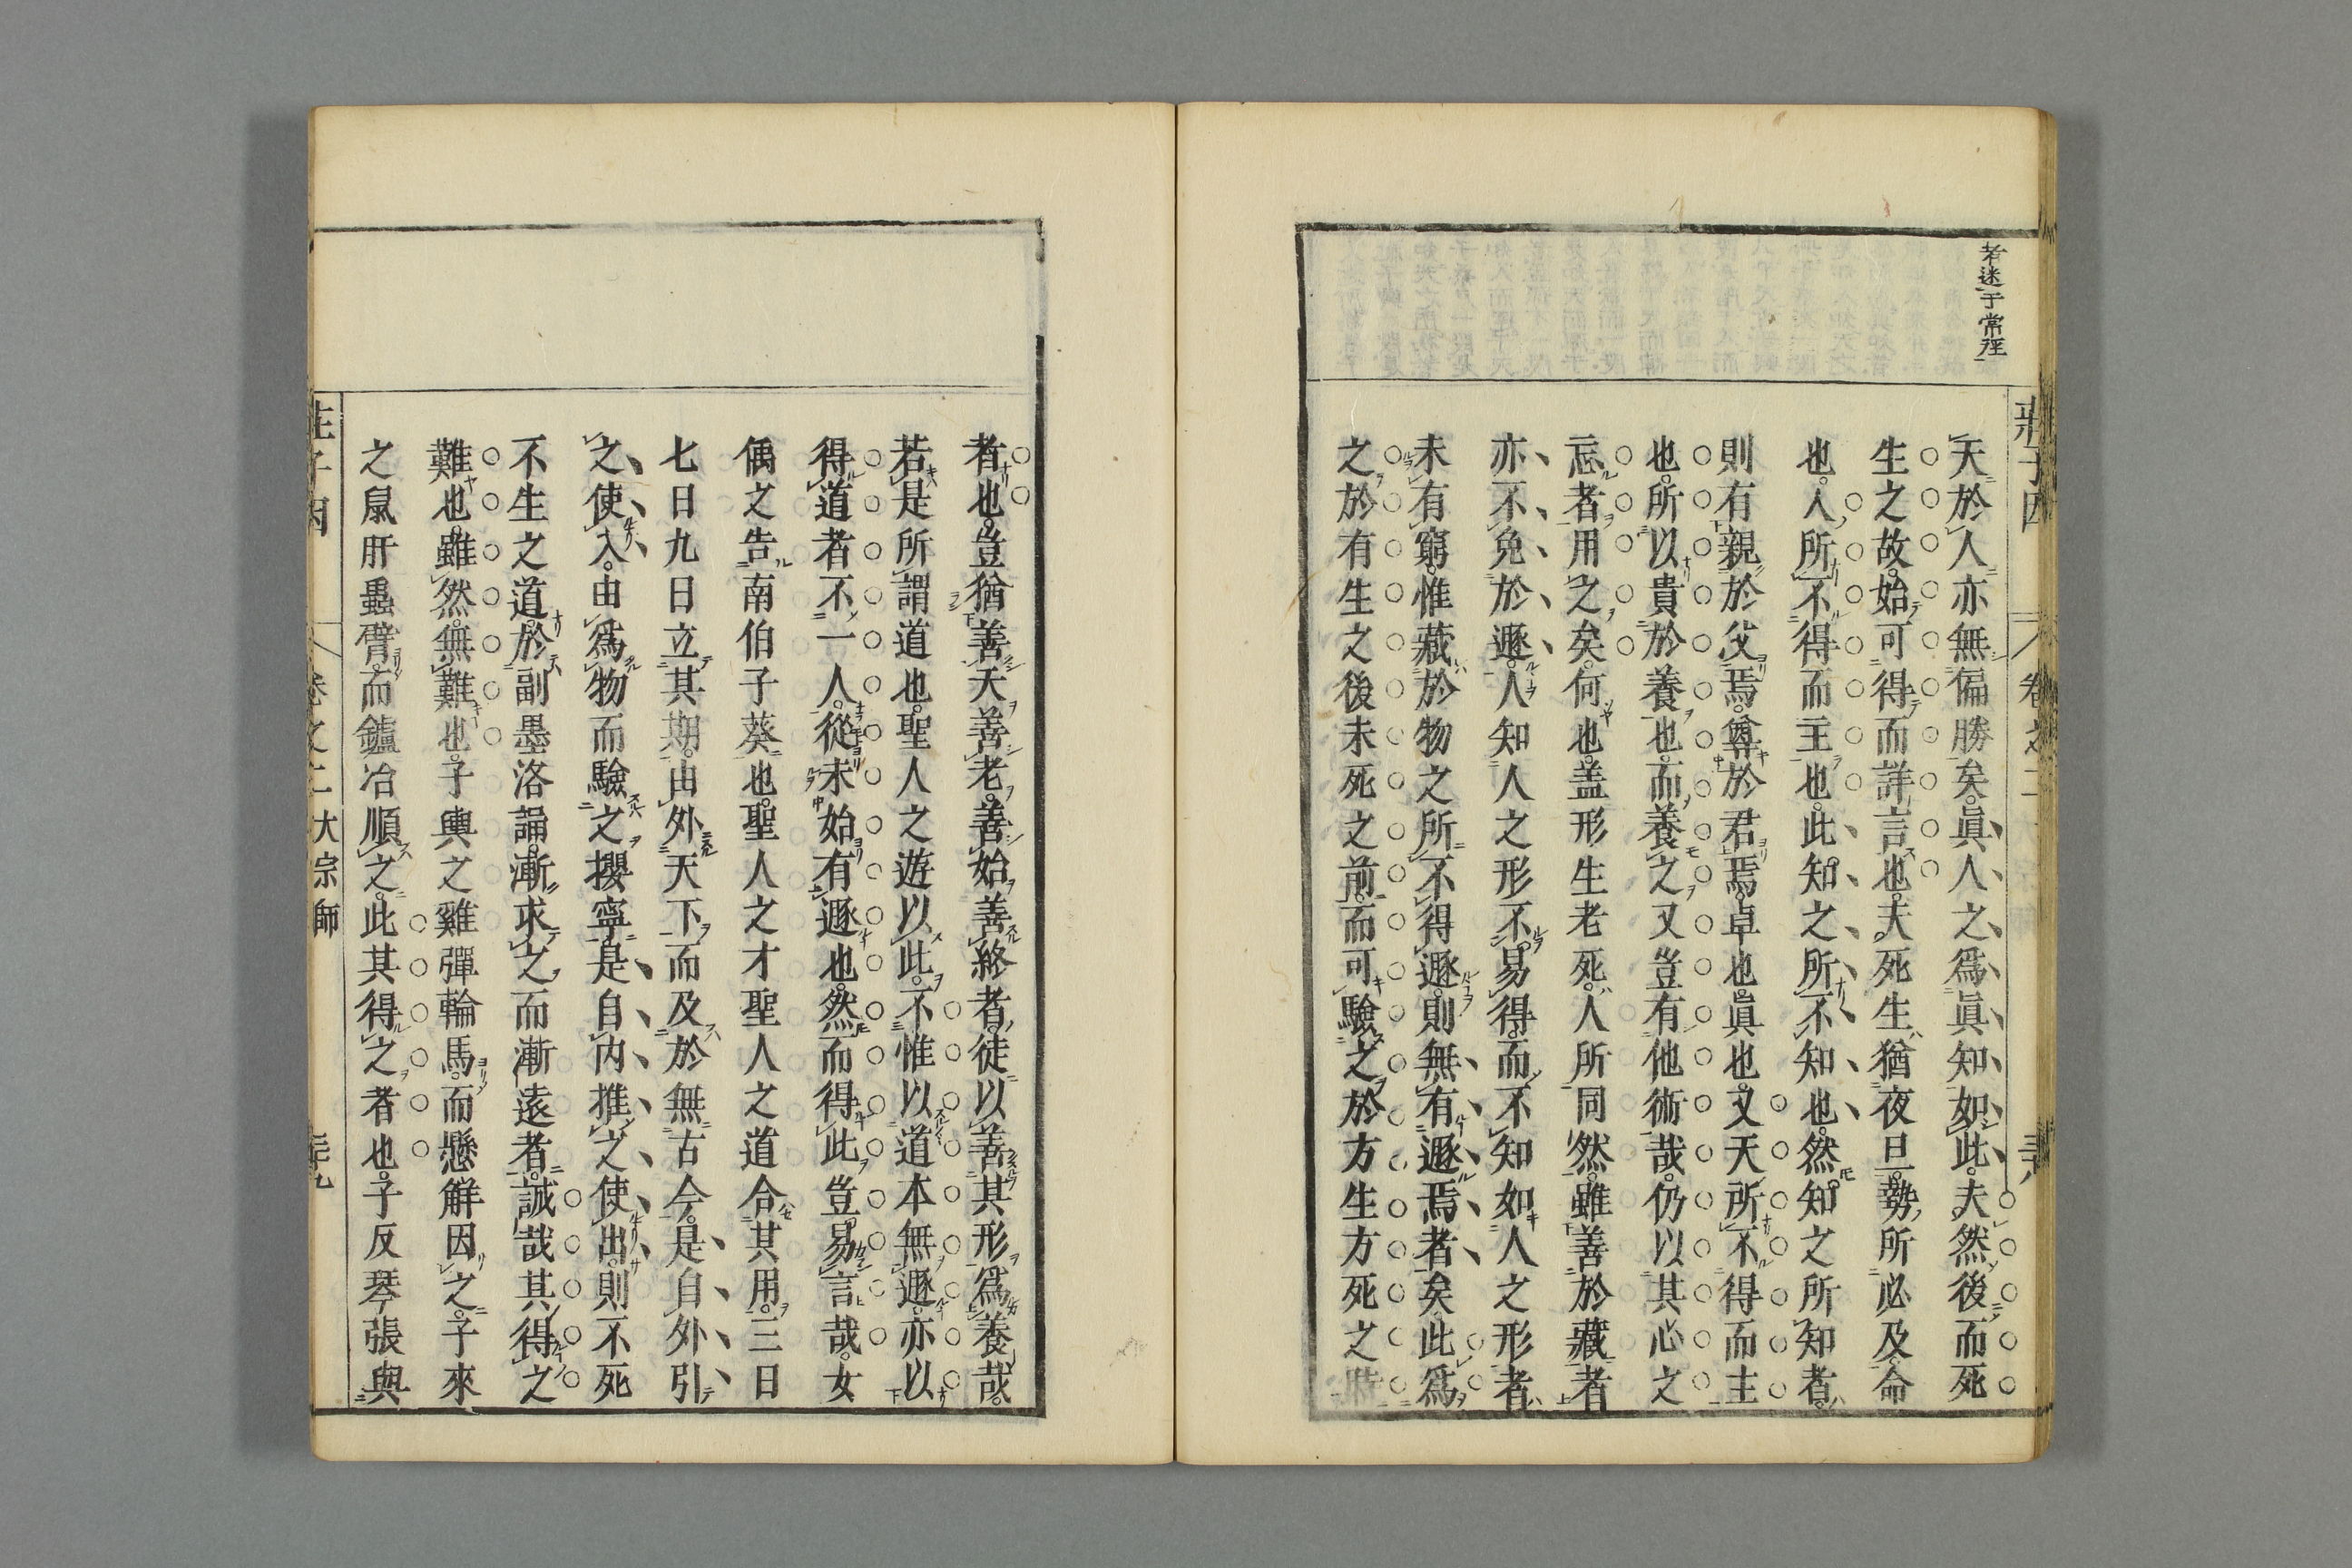 者迷于常理
天於人亦無偏勝矣眞人之爲眞知如此夫然後而死
生之故始可得而詳言也夫死生猶夜旦勢所必及命
也人所不得而主也此知之所不知也然知之所知者
則有親於父焉尊於君焉卓也眞也又天所不得而主
也所以貴於養也而養之又豈有他術哉仍以其心之
忘者用之矣何也盖形生老死人所同然雖善於藏者
亦不免於遯人知人之形不易得而不知如人之形者
未有窮惟藏於物之所不得遯則無有遯焉者矣此爲
之於有生之後未死之前而可驗之於方生方死之時
莊子因
卷之二
者也豈猶善天善老善始善終者徒以善其形爲養哉
若是所謂道也聖人之遊以此不惟以道本無遯亦以
得道者不一人從未始有遯也然而得此豈易言哉女
偊之告南伯子葵也聖人之才聖人之道合其用三日
七日九日立其期由外天下而及於無古今是自外引
之使入由爲物而驗之攖寧是自内推之使出則不死
不生之道於副墨洛誦漸求之而漸遠者誠哉其得之
難也雖然無難也子輿之雞彈輪馬而懸解因之子來
之鼠肝蟲臂而鑪冶順之此其得之者也子反琴張與
莊子因
卷之二
大宗師